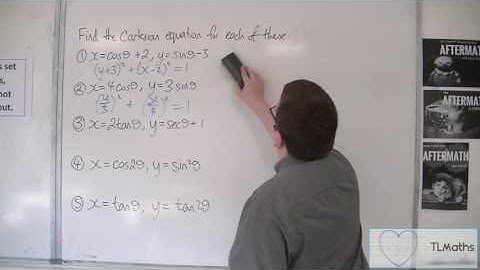 Find the Cartesian equation for each of these
① x=cosθ+2, y=sinθ-3
(y+3)²+(x-2)²=1
② x=4cosθ, y=3sinθ
(y/3)²+(x/4)²=1
③ x=2tanθ, y=secθ+1
④ x=cos2θ, y=sin²θ
⑤ x=tanθ, y=tan2θ
s set
s,
not
out
AFTERMATH
AFTERMATH
AFTERMATH
TLMaths